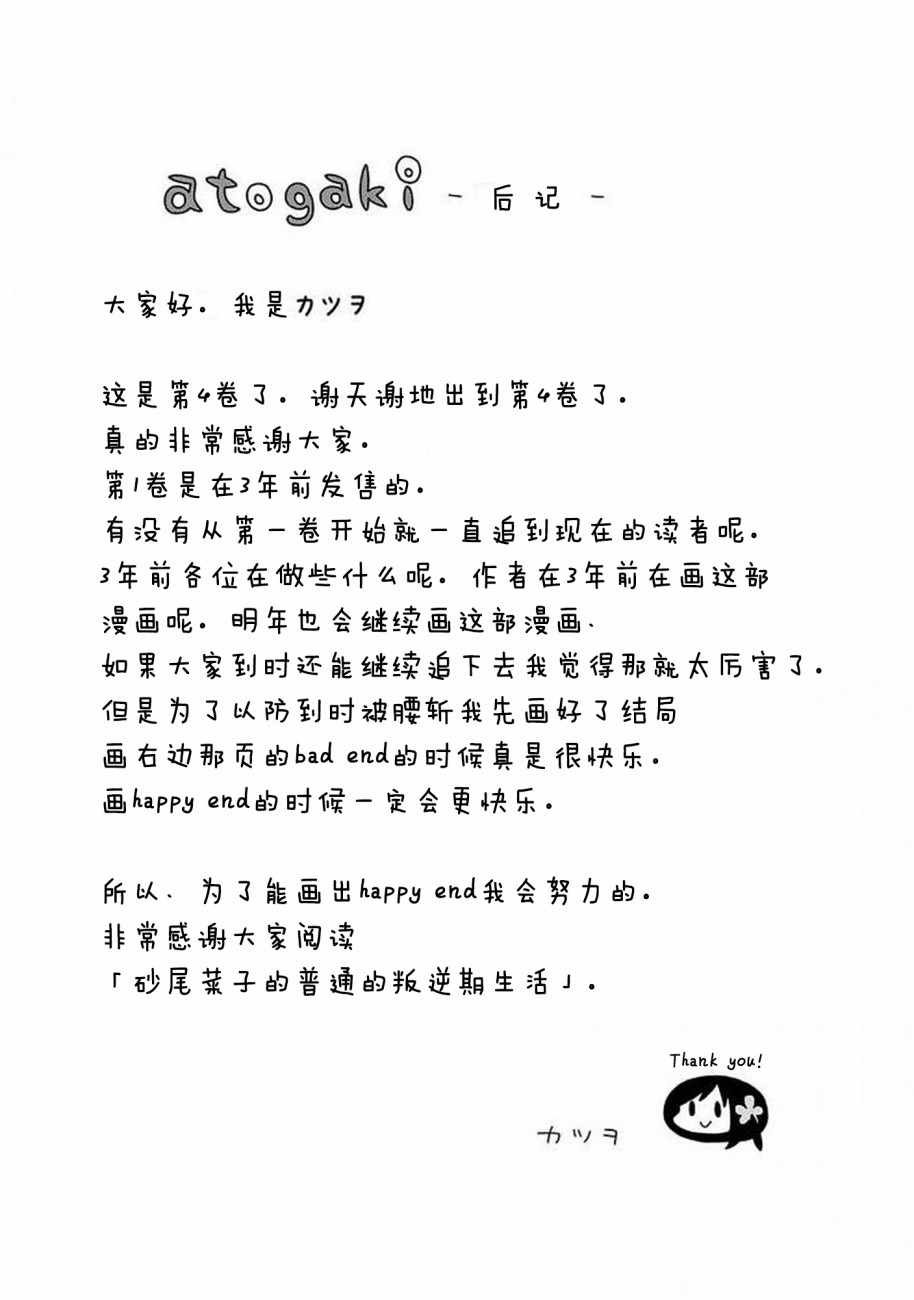 atogaki - 后记 -
大家好。我是カツヲ
这是第4卷了。谢天谢地出到第4卷了。
真的非常感谢大家。
第1卷是在3年前发售的。
有没有从第一卷开始就一直追到现在的读者呢。
3年前各位在做些什么呢。作者在3年前在画这部
漫画呢。明年也会继续画这部漫画、
如果大家到时还能继续追下去我觉得那就太厉害了。
但是为了以防到时被腰斩我先画好了结局
画右边那页的bad end的时候真是很快乐。
画happy end的时候一定会更快乐。
所以、为了能画出happy end我会努力的。
非常感谢大家阅读
「砂尾菜子的普通的叛逆期生活」。
Thank you!
カツヲ